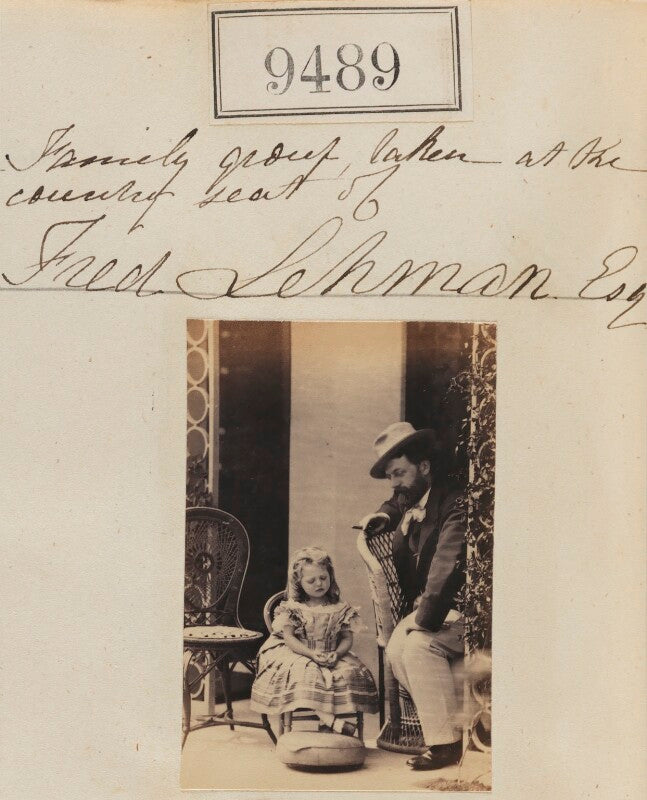 9489
Family group, taken at the
country seat of
Fred Lehman Esq